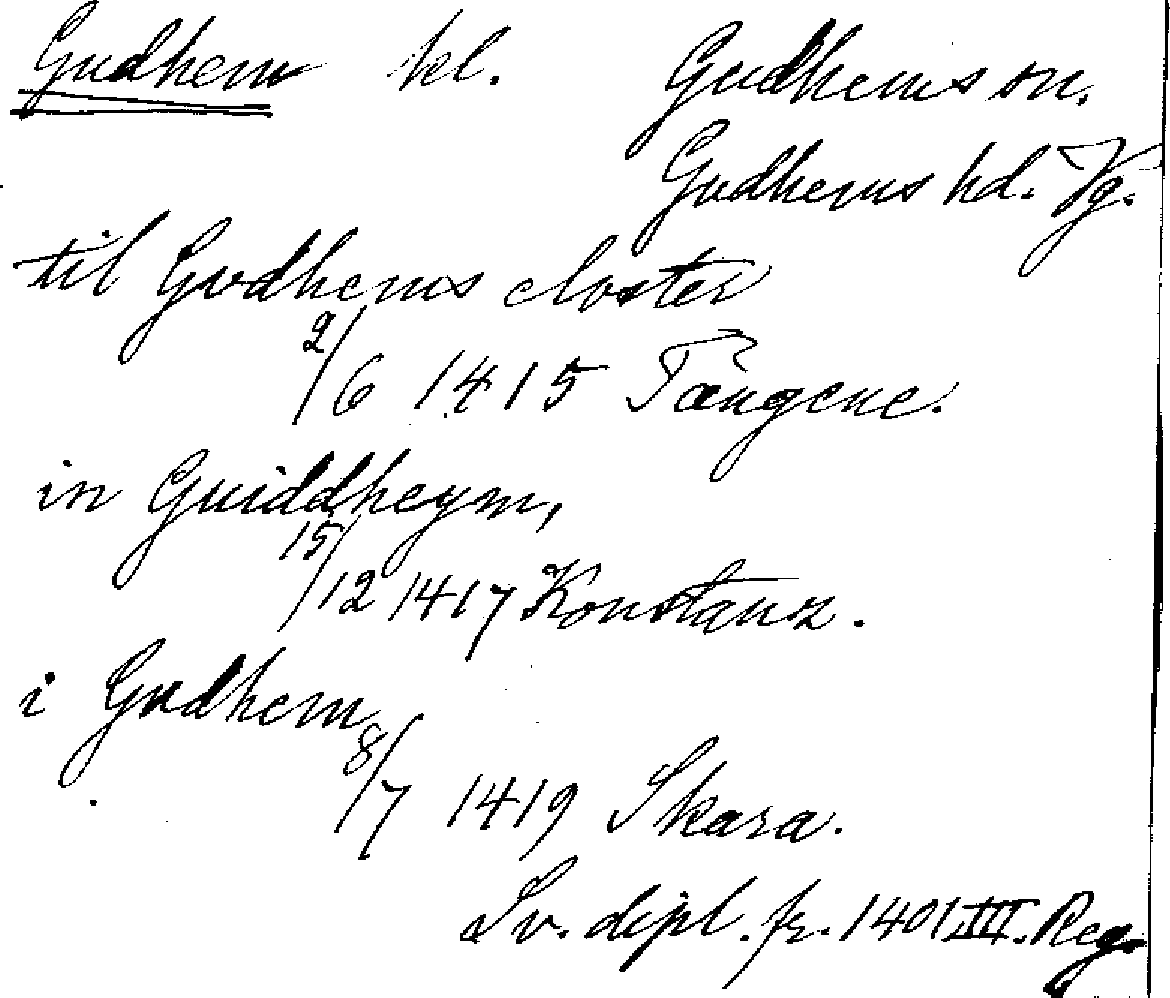 Gudhem kl. Gudhems sn.
Gudhems hd. Vg.
til Gudhems closter
2/6 1415 Tængene.
in Guiddheym,
15/12 1417 Konstanz.
i Gudhem
8/7 1419 Skara.
Sv. dipl. fr. 1401 III. Reg.